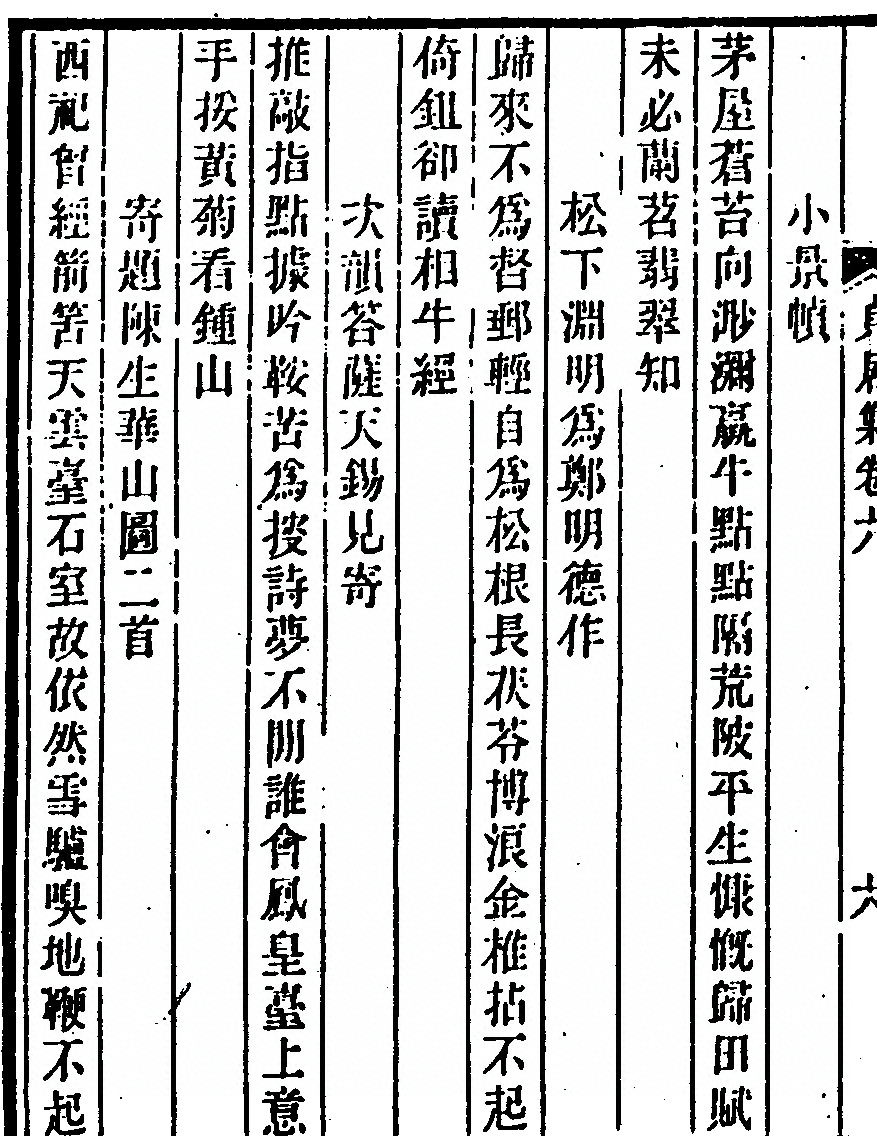 貞居集卷六
六
小景幀
茅屋蒼苔向渺瀰羸牛點點隔荒陂平生慷慨歸田賦
未必蘭苕翡翠知
松下淵明爲鄭明德作
歸來不爲督郵輕自爲松根長茯苓博浪金椎拈不起
倚鉏卻讀相牛經
次韻答薩天錫見寄
推敲指點據吟鞍苦爲搜詩夢不閒誰會鳳皇臺上意
手挼黃菊看鍾山
寄題陳生華山圖二首
西祀曾經箭筈天雲臺石室故依然雪驢嗅地鞭不起